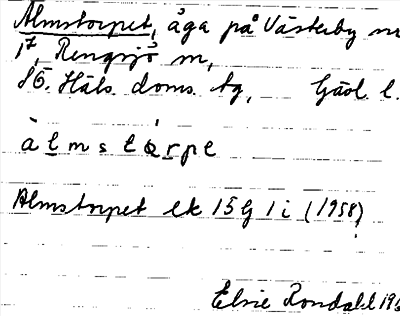 Almstorpet, åga på Västerby nr
1⁷, Rengsjö sn,
SÖ. Häls. doms. tg, Gävl. l.
àlmstɷ̀rpe̩t
Almstorpet ek 15G 1i (1958)
Elsie Rondahl 19